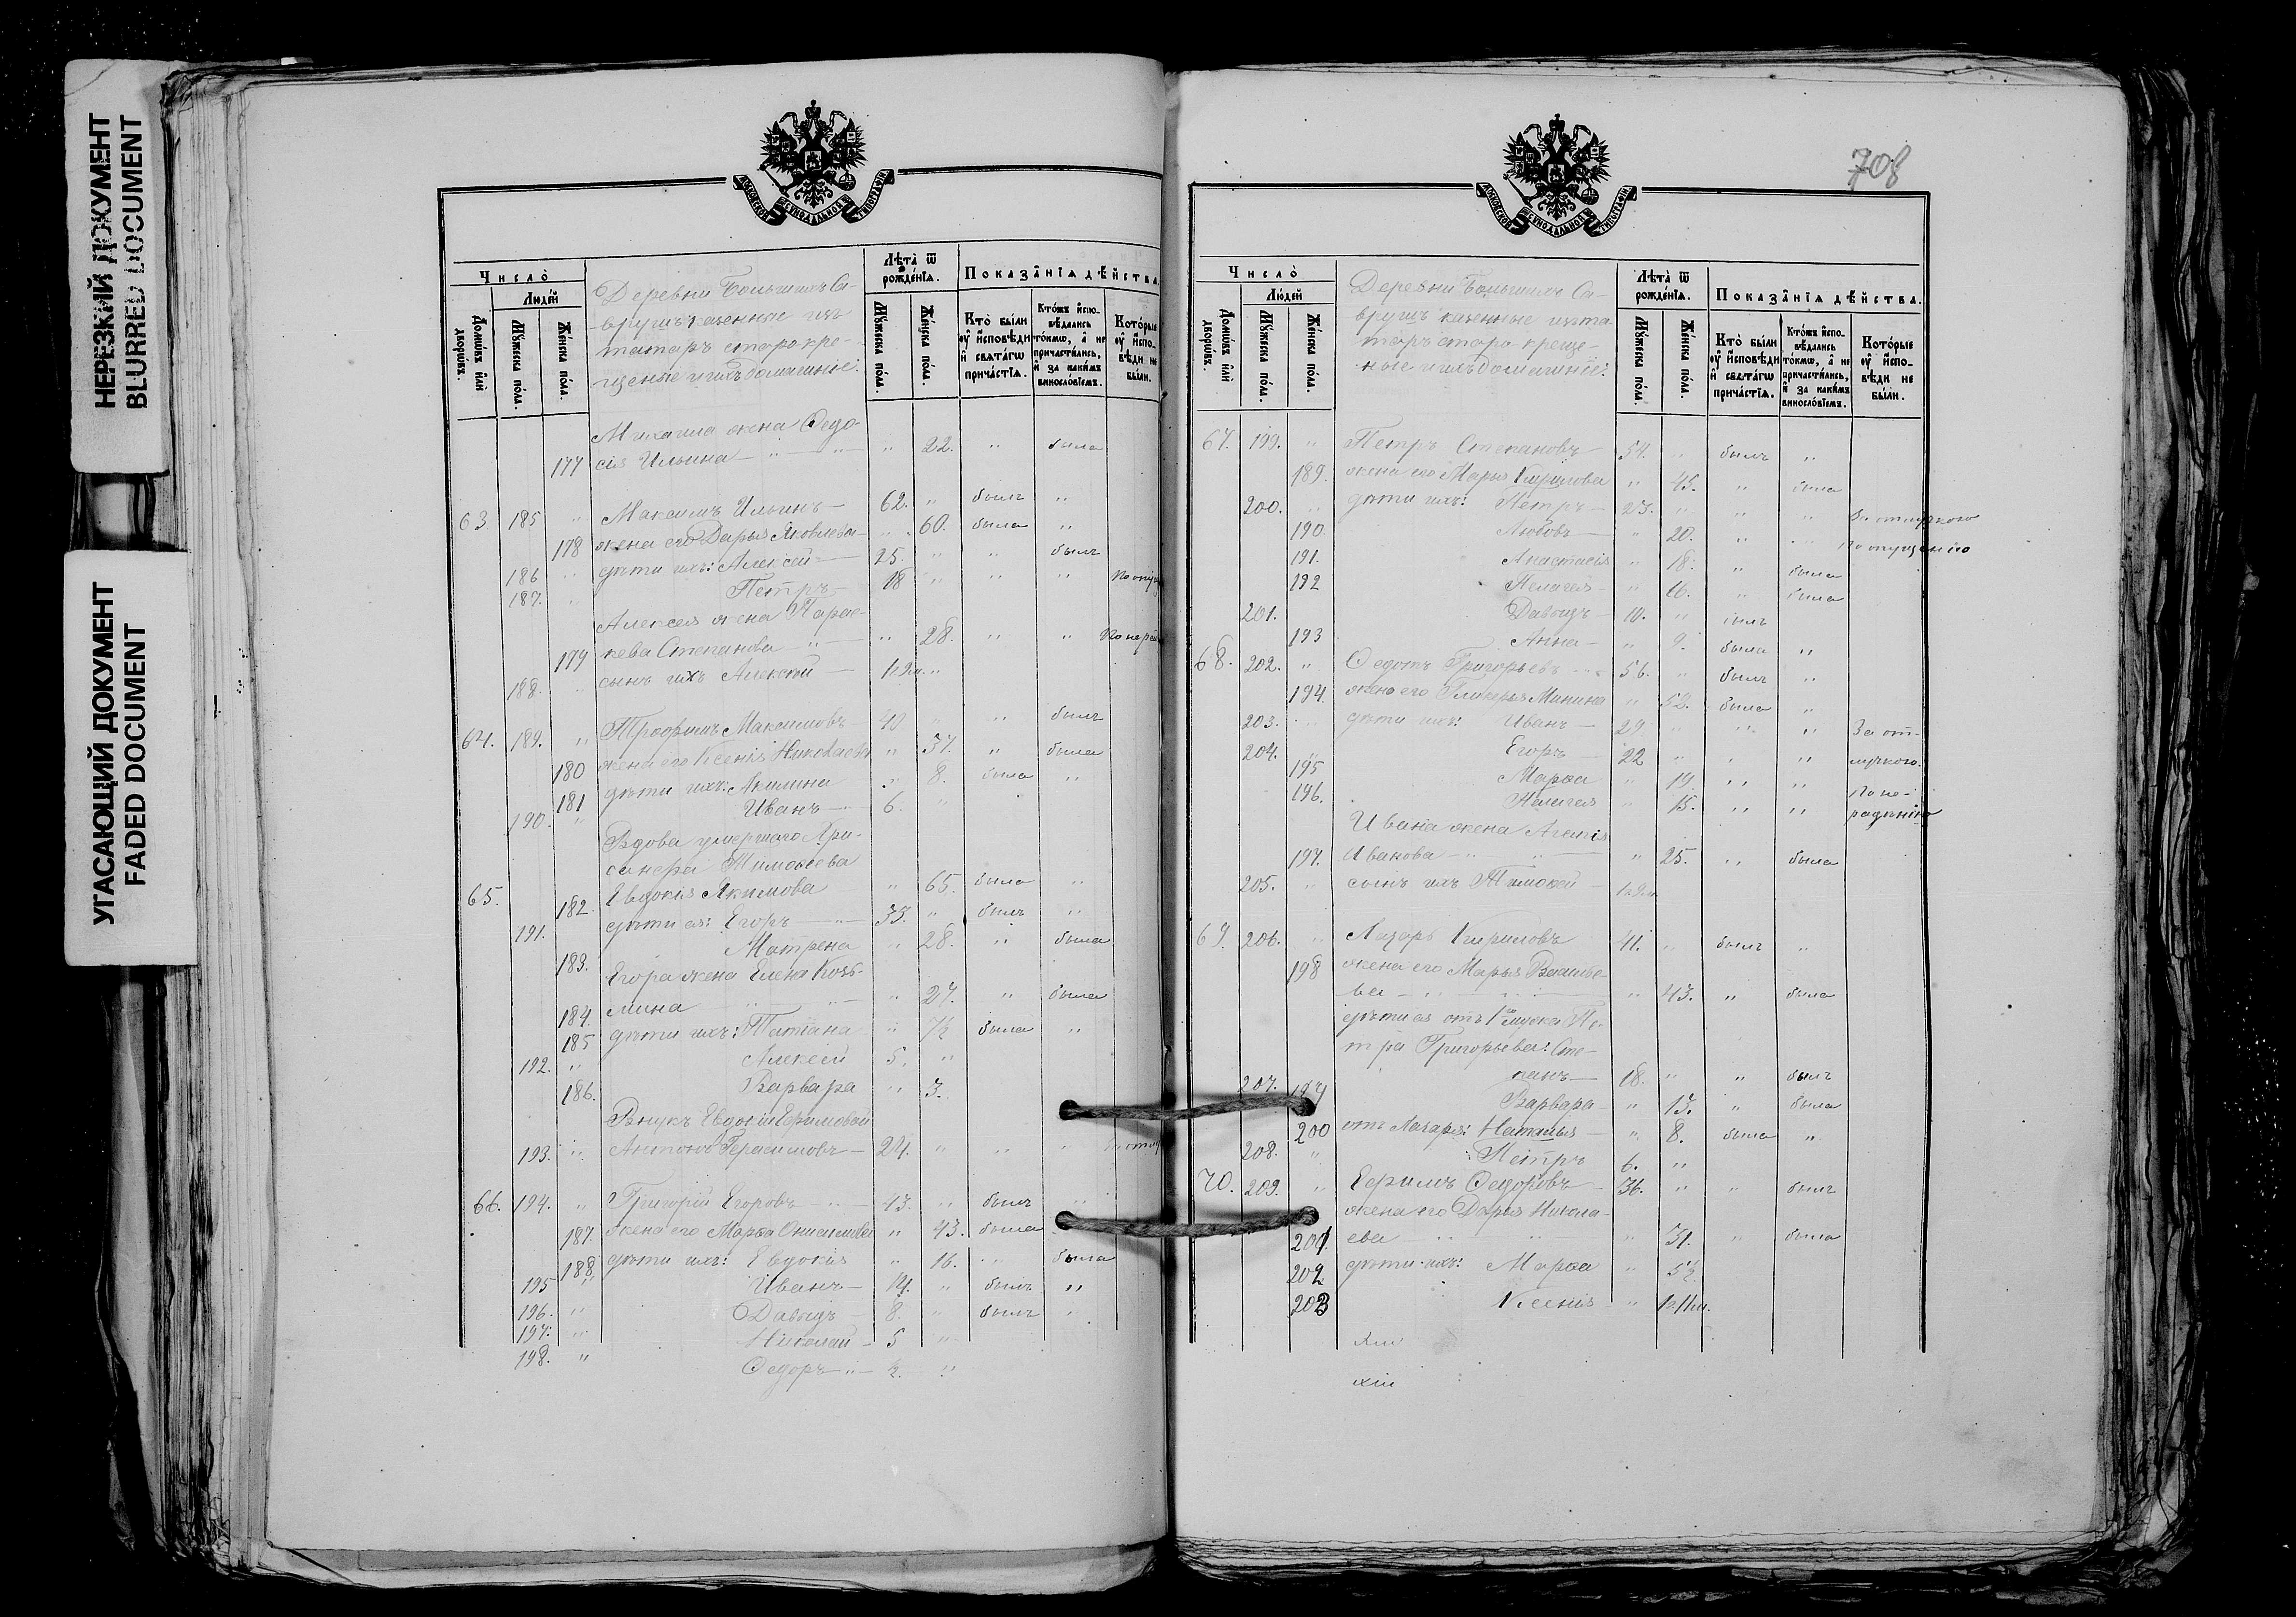 НЕРЕЗКИЙ ДОКУМЕНТ
BLURRED DOCUMENT
УГАСАЮЩИЙ ДОКУМЕНТ
FADED DOCUMENT
МОСКОВСКОЙ СѴНОДАЛЬНОЙ ТИПОГРАФІИ
Число̀
Люде́й
Домѡ́въ и҆лѝ дворѡ́въ.
Мꙋ́жеска по́ла.
Же́нска по́ла.
Деревни Большихъ Са-
врушъ казенные изъ
татаръ старокре-
щеные и ихъ домашніе.
Лѣ́та ѿ рожде́нїѧ.
Мꙋ́жеска по́ла.
Же́нска по́ла.
Показа̑нїѧ дѣ́йства
Кто̀ бы́ли ᲂу҆ и҆сповѣ́ди и҆ свѧта́гѡ прича́стїѧ.
Кто́жъ и҆спо-вѣ́дались то́кмѡ, а҆ не причасти́лись, и҆ за каки́мъ виносло́вїемъ.
Кото́рые ᲂу҆ и҆спо-вѣ́ди не бы́ли.
Михаила жена Ѳедо-
177 сія Ильина — " — " 22. " была
63. 185 " Максимъ Ильинъ — 62. " былъ "
178 жена его Дарья Яковлева — " 60. была "
186 " дѣти ихъ: Алексей — 25. " " былъ
187. " Петръ — 18 " " "
Алексея жена Парас-
179 кева Степанова — " " 28. " "
188. " сынъ ихъ Алексей —
64. 189. " Трофимъ Максимовъ — 40 " " былъ
180 жена его Ксенія Николаева " 37. " была
181 дѣти ихъ: Акилина " 8. была "
190. " Иванъ — 6. "
Вдова умершаго
Тимофеева
65. 182. Евдокія Якимова " 65. была "
191. дѣти ея: Егоръ — 33. " былъ "
183. Матрена " 28. " была
Егора жена Елена Козь-
184. мина " 27. " была
185 дѣти ихъ: Татіана " 7½ была "
192. " Алексей 5. "
186. Варвара " 3.
Внукъ Евдокіи Ефимовой
193. " Антонъ Герасимовъ — 24. " " "
66. 194. " Григорій Егоровъ — 43. " былъ "
187. жена его Марфа Онисимова " 43. была
188. дѣти ихъ: Евдокія " 16. " была
195 " Иванъ — 14. " былъ "
196. " Давыдъ 8. " былъ "
197. " Николай — 5 "
198. " Ѳедоръ — ½. "
708
МОСКОВСКОЙ СѴНОДАЛЬНОЙ ТИПОГРАФІИ
Число̀
Люде́й
Домѡ́въ и҆лѝ дворѡ́въ.
Мꙋ́жеска по́ла.
Же́нска по́ла.
Деревни Большихъ Са-
врушъ казенные изъ та-
таръ старо-креще-
ные и ихъ домашніе.
Лѣ́та ѿ рожде́нїѧ.
Мꙋ́жеска по́ла.
Же́нска по́ла.
Показа̑нїѧ дѣ́йства.
Кто̀ бы́ли ᲂу҆ и҆сповѣ́ди и҆ свѧта́гѡ прича́стїѧ.
Кто́жъ и҆спо-вѣ́дались то́кмѡ, а҆ не причасти́лись, и҆ за каки́мъ виносло́вїемъ.
Кото́рые ᲂу҆ и҆спо-вѣ́ди не бы́ли.
67. 199. " Петръ Степановъ 54. " былъ "
189. жена его Марья Кирилова " 45. " была
200. " дѣти ихъ: Петръ — 23. " " " За отлучкою
190 Любовь — " 20. " " По опущенію
191. Анастасія " 18. " была
192 Пелагея — " 16. " была
201. Давыдъ — 10. " былъ
193 Анна — " 9. была "
68. 202. " Ѳедотъ Григорьевъ — 56. " былъ "
194. жена его Гликерья Минина " 52. была "
203. дѣти ихъ: Иванъ — 29 " " " За от-
204. " Егоръ — 22 " " " лучкою.
195 Марфа " 19. " " По не-
196. Пелагея " 15. " " радѣнію
Ивана жена Агапія
197. Иванова — " " 25. " была
205. " сынъ ихъ Тимофей —
69. 206. " Лазарь Кириловъ 41. " былъ "
198 жена его Марья Василье-
ва — " 43. " была
дѣти ея отъ 1го мужа Пе-
тра Григорьева: Сте-
207. панъ — 18. " " былъ
199 Варвара — " 13. " была
200 отъ Лазаря: Наталья — " 8. была "
208. " Петръ 6. "
70. 209. " Ефимъ Ѳедоровъ — 36. " " былъ
жена его Дарья Никола-
201. ева " 31. " была
202 дѣти ихъ: Марфа " 5½
203 Ксенія "